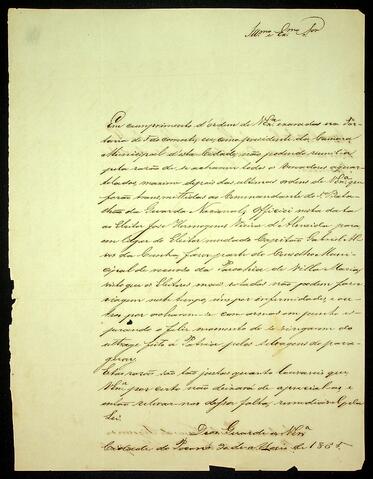 Illmo. e Exmo. Snr.
Em cumprimento d'ordem de V. Exa. exarada na Por-
taria de do corrente, eu, como presidente da Camara
Municipal desta Cidade, não podendo reunil-a
pela razão de se acharem todos os Vereadores aquar-
telados, maxime depois das ultimas ordens de V. Exa. que
forão transmittidas ao Commandante do 1º Bata-
lhão da Guarda Nacional, officiei nesta data
ao Eleitor José Hermogenes Vieira d'Almeida para
em lugar do Eleitor mudado Capitão Gabriel
da Cunha, fazer parte do Conselho Muni-
cipal de recurso da Parochia de Villa Maria,
visto que os Eleitores mais votados não podem fazer
viagem neste tempo, uns por infermidade, e ou-
tros por acharem-se com armas em punho es-
perando o feliz momento de se vingarem do
ultrage feito á Patria pelos selvagens do para-
guay.
Estas razões são tão justas quanto
V. Exa. por certo não deixará de aprecial-as e
então relevar-nos dessa falta,
Lei.
Deos Guarde a V. Exa.
Cidade de Poconé de Maio de 1865.